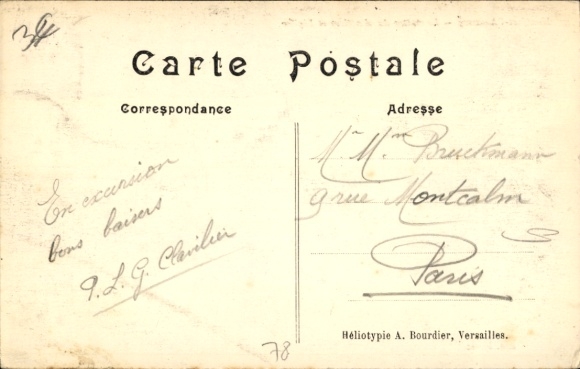 Carte Postale
Correspondance
Adresse
En excursion
bons baisers
P. L. G. Clavilier
Mr Mme Bruckmann
9 rue Montcalm
Paris
78
Héliotypie A. Bourdier, Versailles.